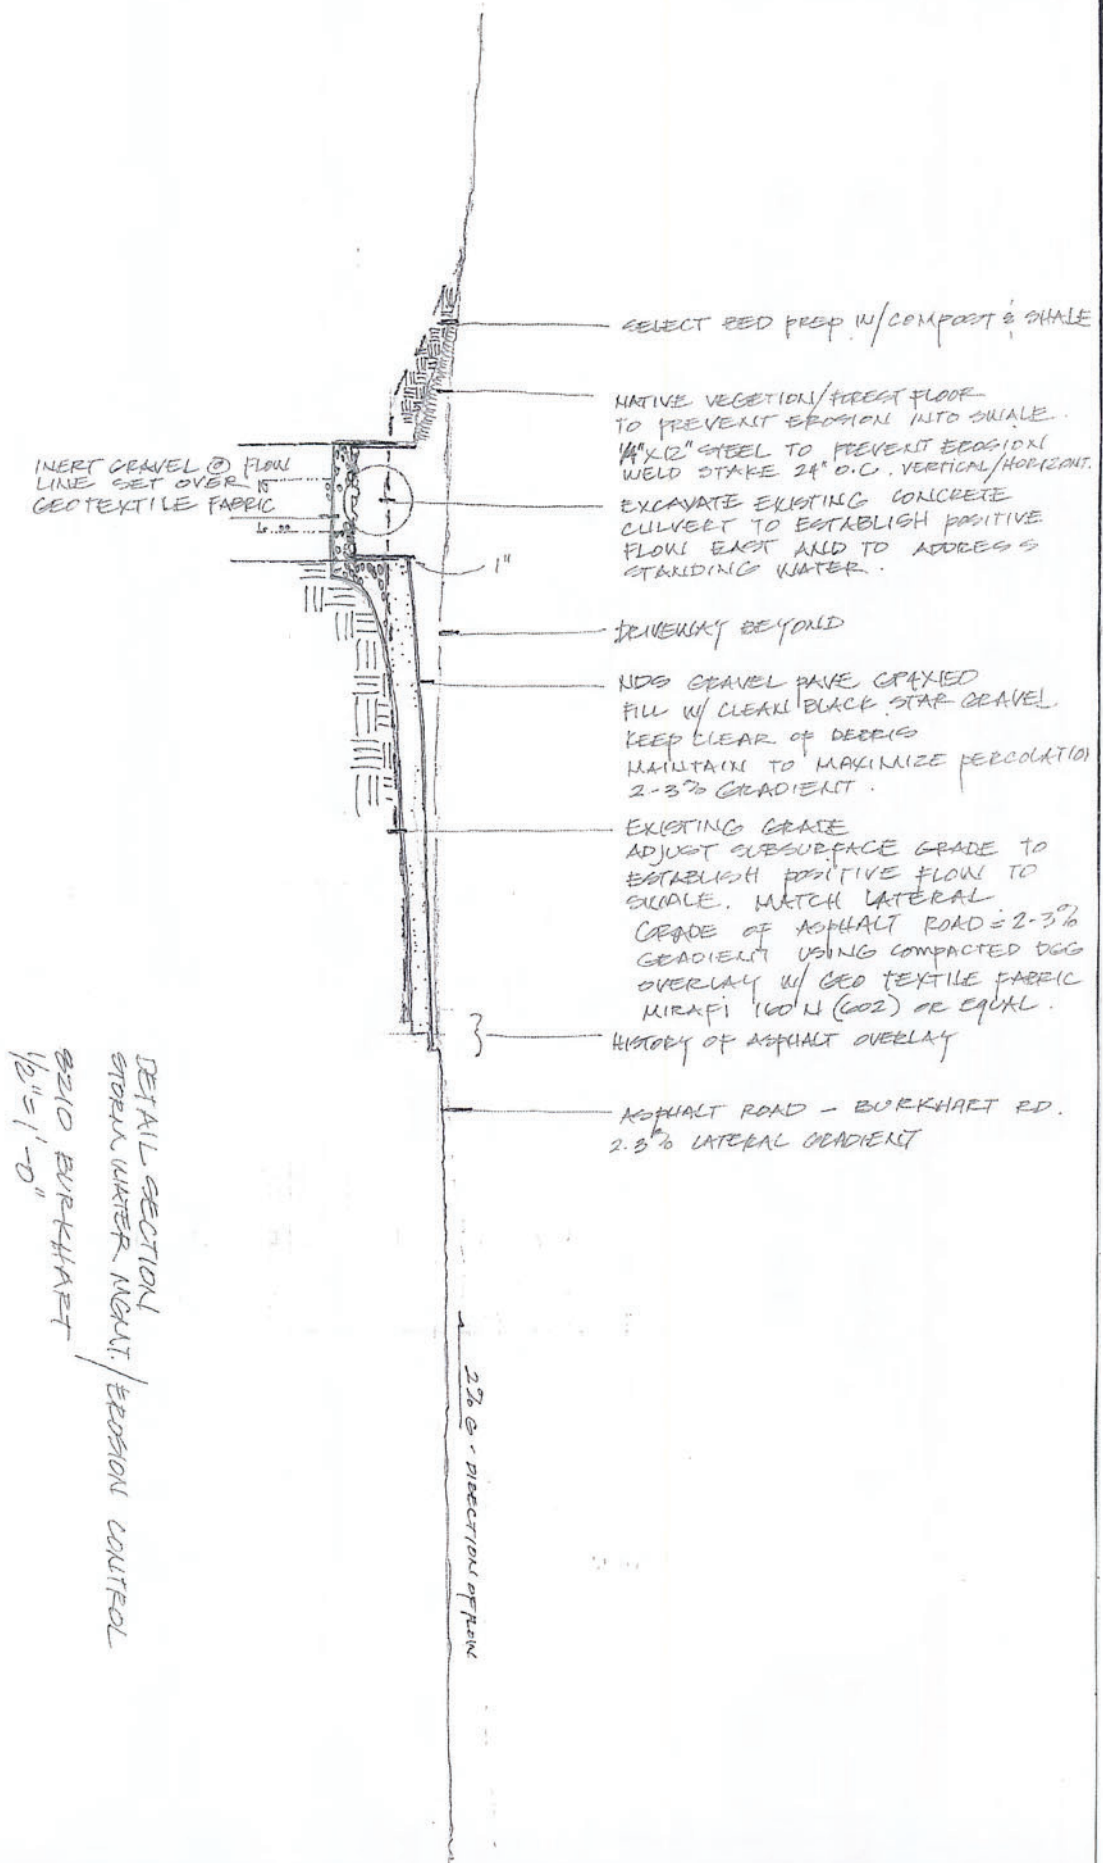 SELECT BED PREP W/COMPOST & SHALE
NATIVE VEGETION/FOREST FLOOR
TO PREVENT EROSION INTO SWALE.
1/4"X12" STEEL TO PREVENT EROSION
WELD STAKE 24" O.C. VERTICAL/HORIZONT.
INERT GRAVEL @ FLOW
LINE SET OVER
GEOTEXTILE FABRIC
EXCAVATE EXISTING CONCRETE
CULVERT TO ESTABLISH POSITIVE
FLOW EAST AND TO ADDRESS
STANDING WATER.
1"
DRIVEWAY BEYOND
NDS GRAVEL PAVE
FILL W/ CLEAN BLACK STAR GRAVEL
KEEP CLEAR OF DEBRIS
MAINTAIN TO MAXIMIZE PERCOLATION
2-3% GRADIENT.
EXISTING GRADE
ADJUST SUBSURFACE GRADE TO
ESTABLISH POSITIVE FLOW TO
SWALE. MATCH LATERAL
GRADE OF ASPHALT ROAD = 2-3%
GRADIENT USING COMPACTED DGG
OVERLAY W/ GEO TEXTILE FABRIC
MIRAFI 160 N (6OZ) OR EQUAL.
HISTORY OF ASPHALT OVERLAY
ASPHALT ROAD - BURKHART RD.
2.3% LATERAL GRADIENT
2% G - DIRECTION OF FLOW
DETAIL SECTION
STORM WATER MGMT./EROSION CONTROL
8210 BURKHART
1/2"=1'-0"